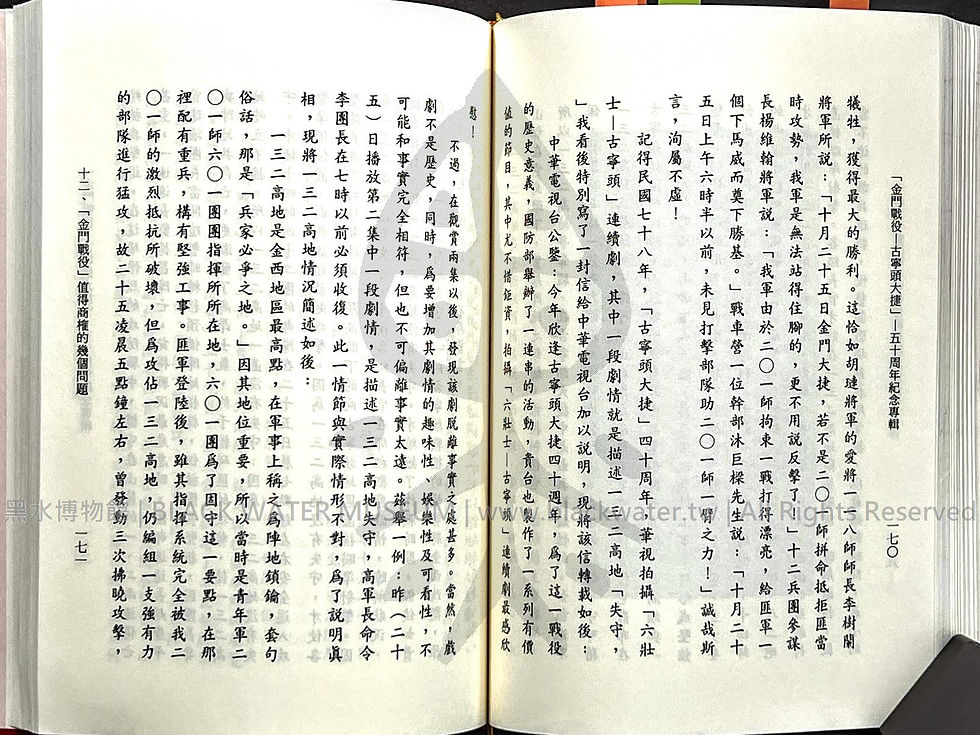 「金門戰役—古寧頭大捷」—五十周年紀念專輯
一七〇
犧牲，獲得最大的勝利。這恰如胡璉將軍的愛將一一八師師長李樹蘭
將軍所說：「十月二十五日金門大捷，若不是二〇一師拼命抵拒匪當
時攻勢，我軍是無法站得住腳的，更不用說反擊了。」十二兵團參謀
長楊維翰將軍說：「我軍由於二〇一師拘束一戰打得漂亮，給匪軍一
個下馬威而奠下勝基。」戰車營一位幹部沐巨樑先生說：「十月二十
五日上午六時半以前，未見打擊部隊助二〇一師一臂之力！」誠哉斯
言，洵屬不虛！
記得民國七十八年，「古寧頭大捷」四十周年，華視拍攝「六壯
士—古寧頭」連續劇，其中一段劇情就是描述一三二高地「失守，
」我看後特別寫了一封信給中華電視台加以說明，現將該信轉載如後：
中華電視台公鑒：今年欣逢古寧頭大捷四十週年，為了這一戰役
的歷史意義，國防部舉辦了一連串的活動，貴台也製作了一系列有價
值的節目，其中尤不惜鉅資，拍攝「六壯士—古寧頭」連續劇最感欣
慰！
不過，在觀賞兩集以後，發現該劇脫離事實之處甚多。當然，戲
劇不是歷史，同時，為要增加其劇情的趣味性、娛樂性及可看性，不
可能和事實完全相符，但也不可偏離事實太遠。茲舉一例：昨（二十
五）日播放第二集中一段劇情，是描述一三二高地失守，高軍長命令
李團長在七時以前必須收復。此一情節與實際情形不對，為了說明真
相，現將一三二高地情況簡述如後：
一三二高地是金西地區最高點，在軍事上稱之為陣地鎖鑰，套句
俗話，那是「兵家必爭之地。」因其地位重要，所以當時是青年軍二
〇一師六〇一團團指揮所所在地，六〇一團為了固守這一要點，在那
裡配有重兵，構有堅強工事。匪軍登陸後，雖其指揮系統完全被我二
〇一師的激烈抵抗所破壞，但為攻佔一三二高地，仍編組一支強有力
的部隊進行猛攻，故二十五凌晨五點鐘左右，曾發動三次拂曉攻擊，
十二、「金門戰役」值得商榷的幾個問題
一七一
黑水博物館 | BLACK WATER MUSEUM | www.blackwater.tw | All Rights Reserved